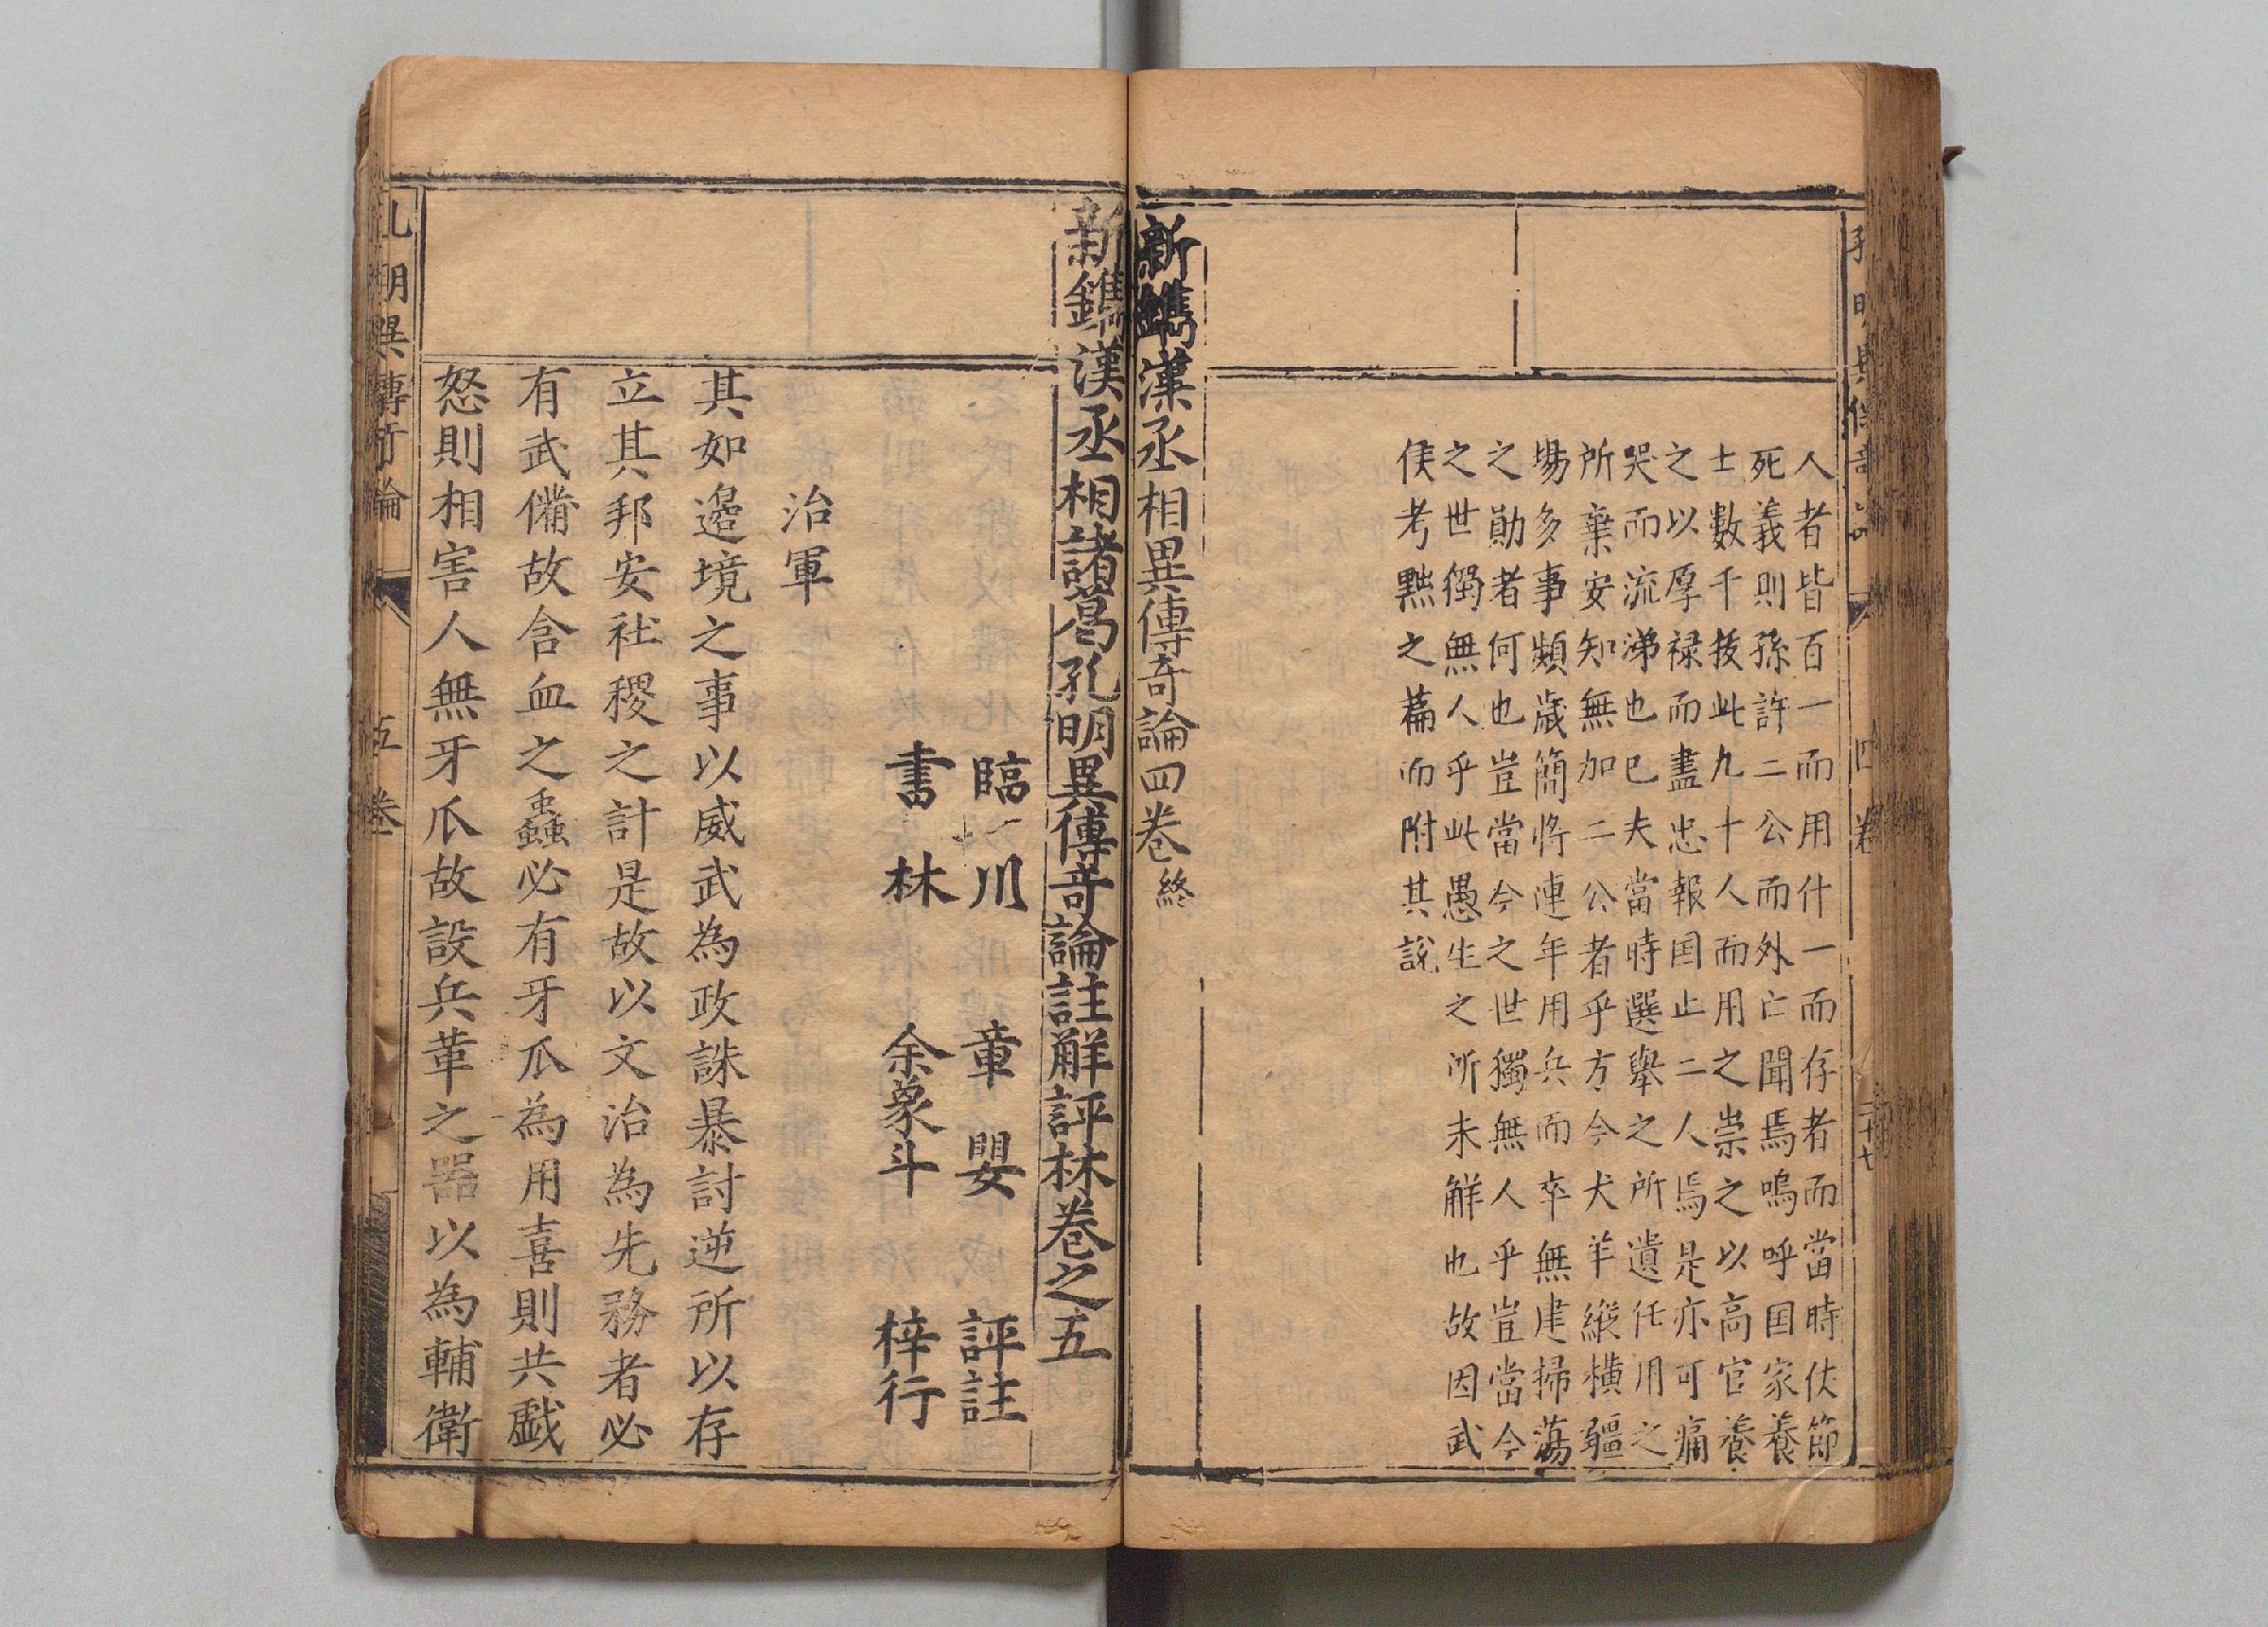 人者皆百一而用什一而存者而當時伏節
死義則孫許二公而外亡聞焉嗚呼国家養
士數千拔此九十人而用之崇之以高官養
之以厚禄而盡忠報国止二人焉是亦可痛
哭而流涕也已夫當時選舉之所遺任用之
所棄安知無加二公者乎方今犬羊縱橫疆
場多事頻歲簡將連年用兵而卒無建掃蕩
之勛者何也豈當今之世獨無人乎豈當今
之世獨無人乎此愚生之所未解也故因武
侯考黜之篇而附其說
新鐫漢丞相異傳奇論四卷終
新鐫漢丞相諸葛孔明異傳奇論註解評林卷之五
臨川 章嬰 評註
書林 余象斗 梓行
治軍
其如邉境之事以威武為政誅暴討逆所以存
立其邦安社稷之計是故以文治為先務者必
有武備故含血之蟲必有牙爪為用喜則共戱
怒則相害人無牙爪故設兵革之器以為輔衛
孔明異傳奇論 五卷
四卷 二十七